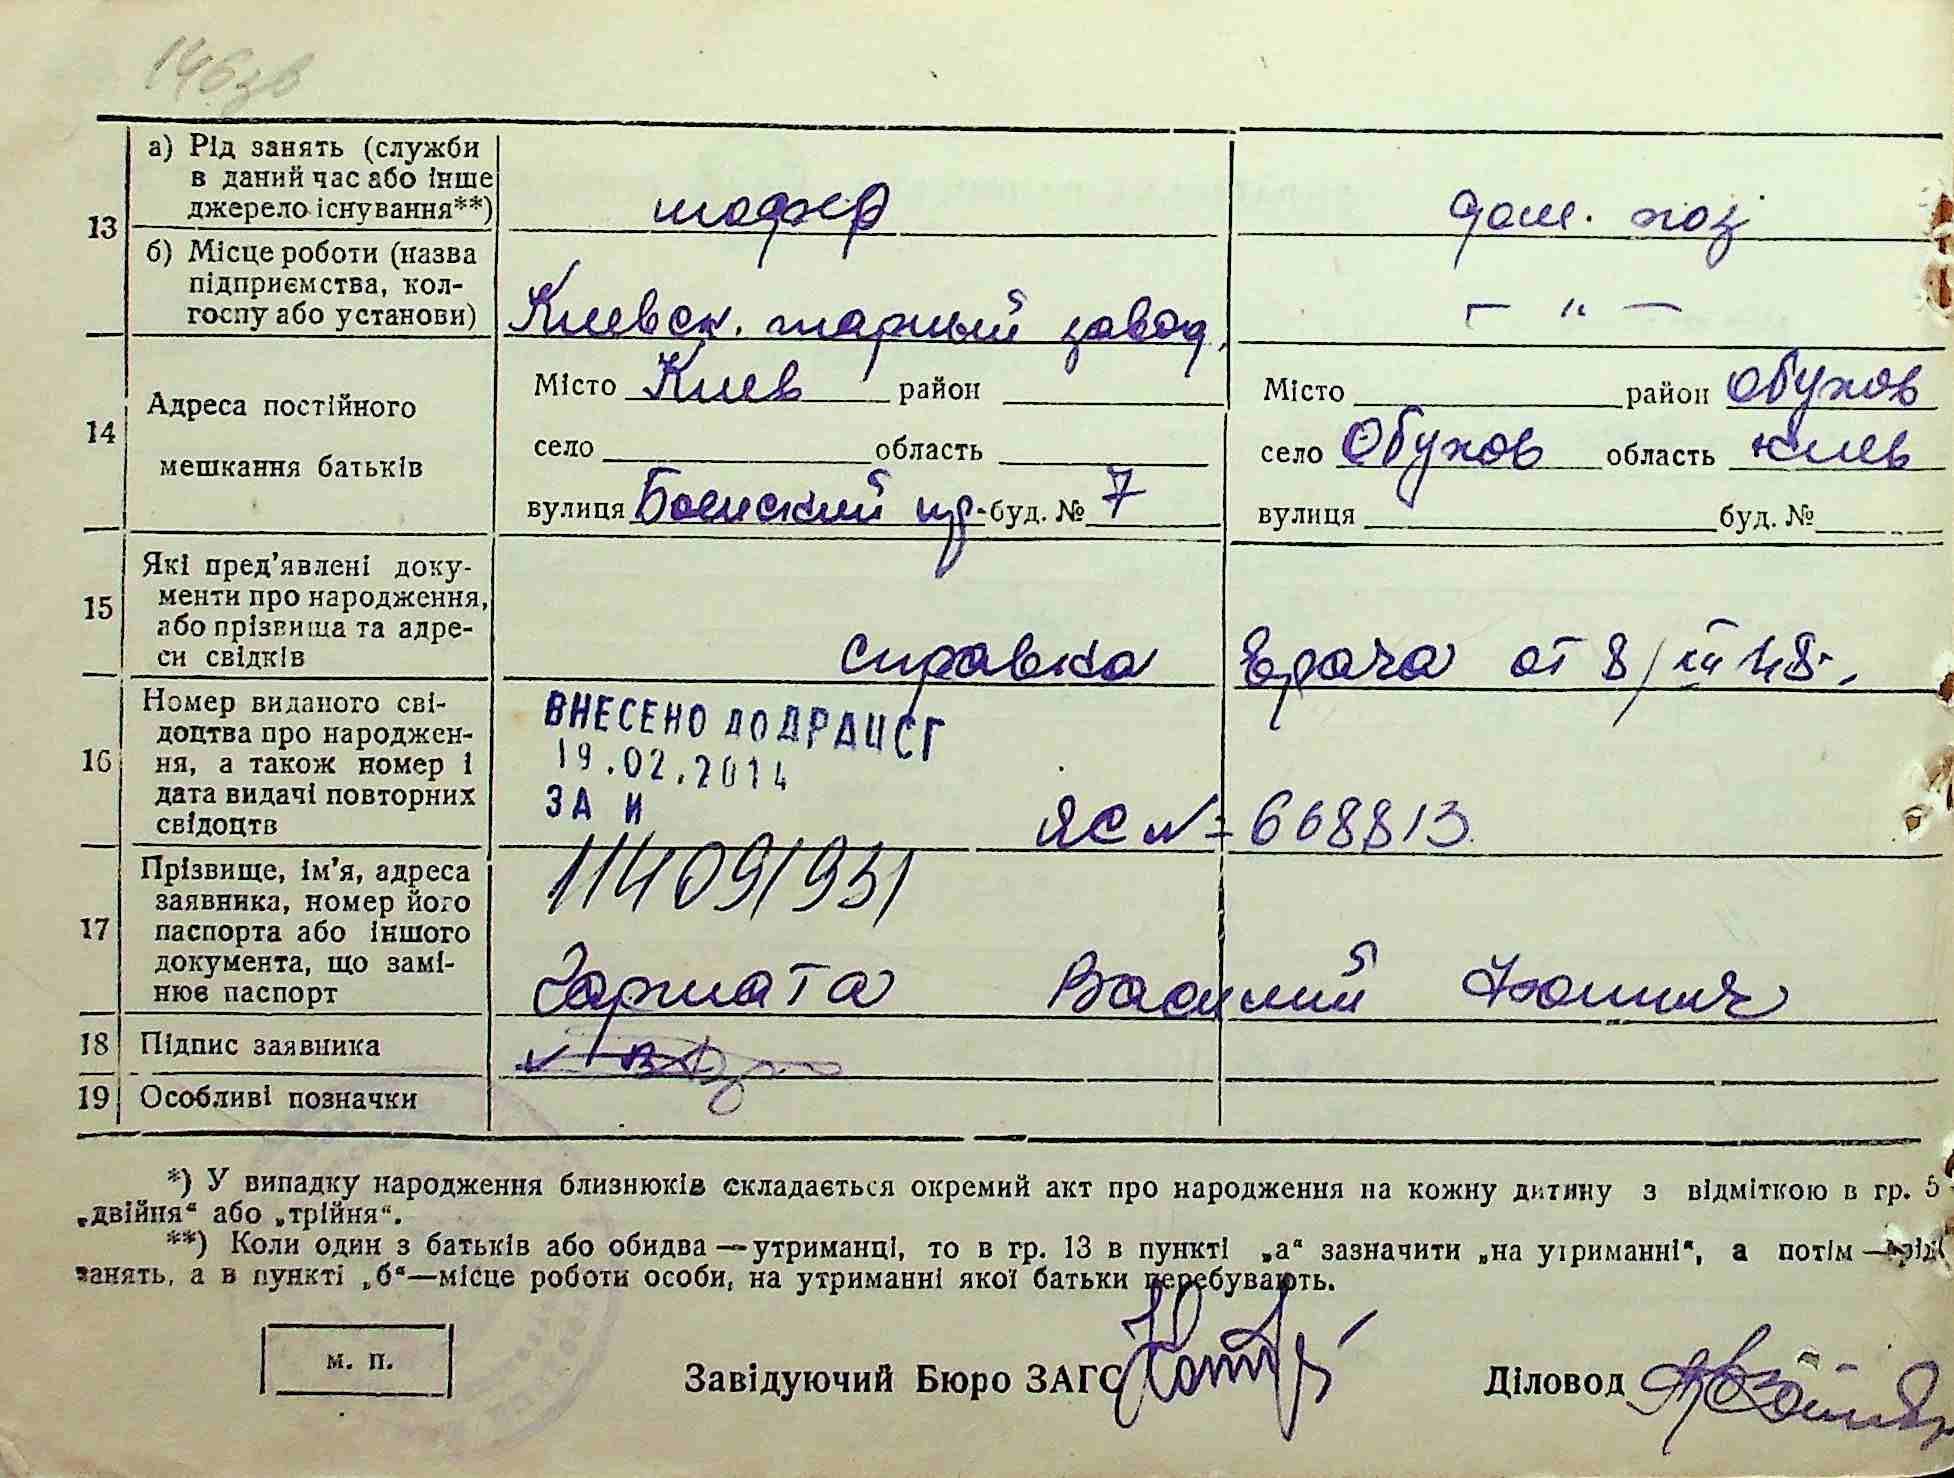 146зв
13
а) Рід занять (служби
в даний час або інше
джерело існування**)
шофер
дом. хоз
б) Місце роботи (назва
підприємства, кол-
госпу або установи)
Киевск. тарный завод,
— „ —
14
Адреса постійного
мешкання батьків
Місто Киев район
село область
вулиця Боенский пр. буд. № 7
Місто район Обухов
село Обухов область Киев
вулиця буд. №
15
Які пред'явлені доку-
менти про народження,
або прізвища та адре-
си свідків
справка врача от 8/III 48г.
16
Номер виданого сві-
доцтва про народжен-
ня, а також номер і
дата видачі повторних
свідоцтв
ВНЕСЕНО ДО ДРАЦСГ
19.02.2014
ЗА И
ЯС № 668813
114091931
17
Прізвище, ім'я, адреса
заявника, номер його
паспорта або іншого
документа, що замі-
нює паспорт
Василий
18
Підпис заявника
19
Особливі позначки
*) У випадку народження близнюків складається окремий акт про народження на кожну дитину з відміткою в гр. 5
„двійня“ або „трійня“.
**) Коли один з батьків або обидва — утриманці, то в гр. 13 в пункті „а“ зазначити „на утриманні“, а потім — рід
занять, а в пункті „б“—місце роботи особи, на утриманні якої батьки перебувають.
м. п.
Завідуючий Бюро ЗАГС
Діловод